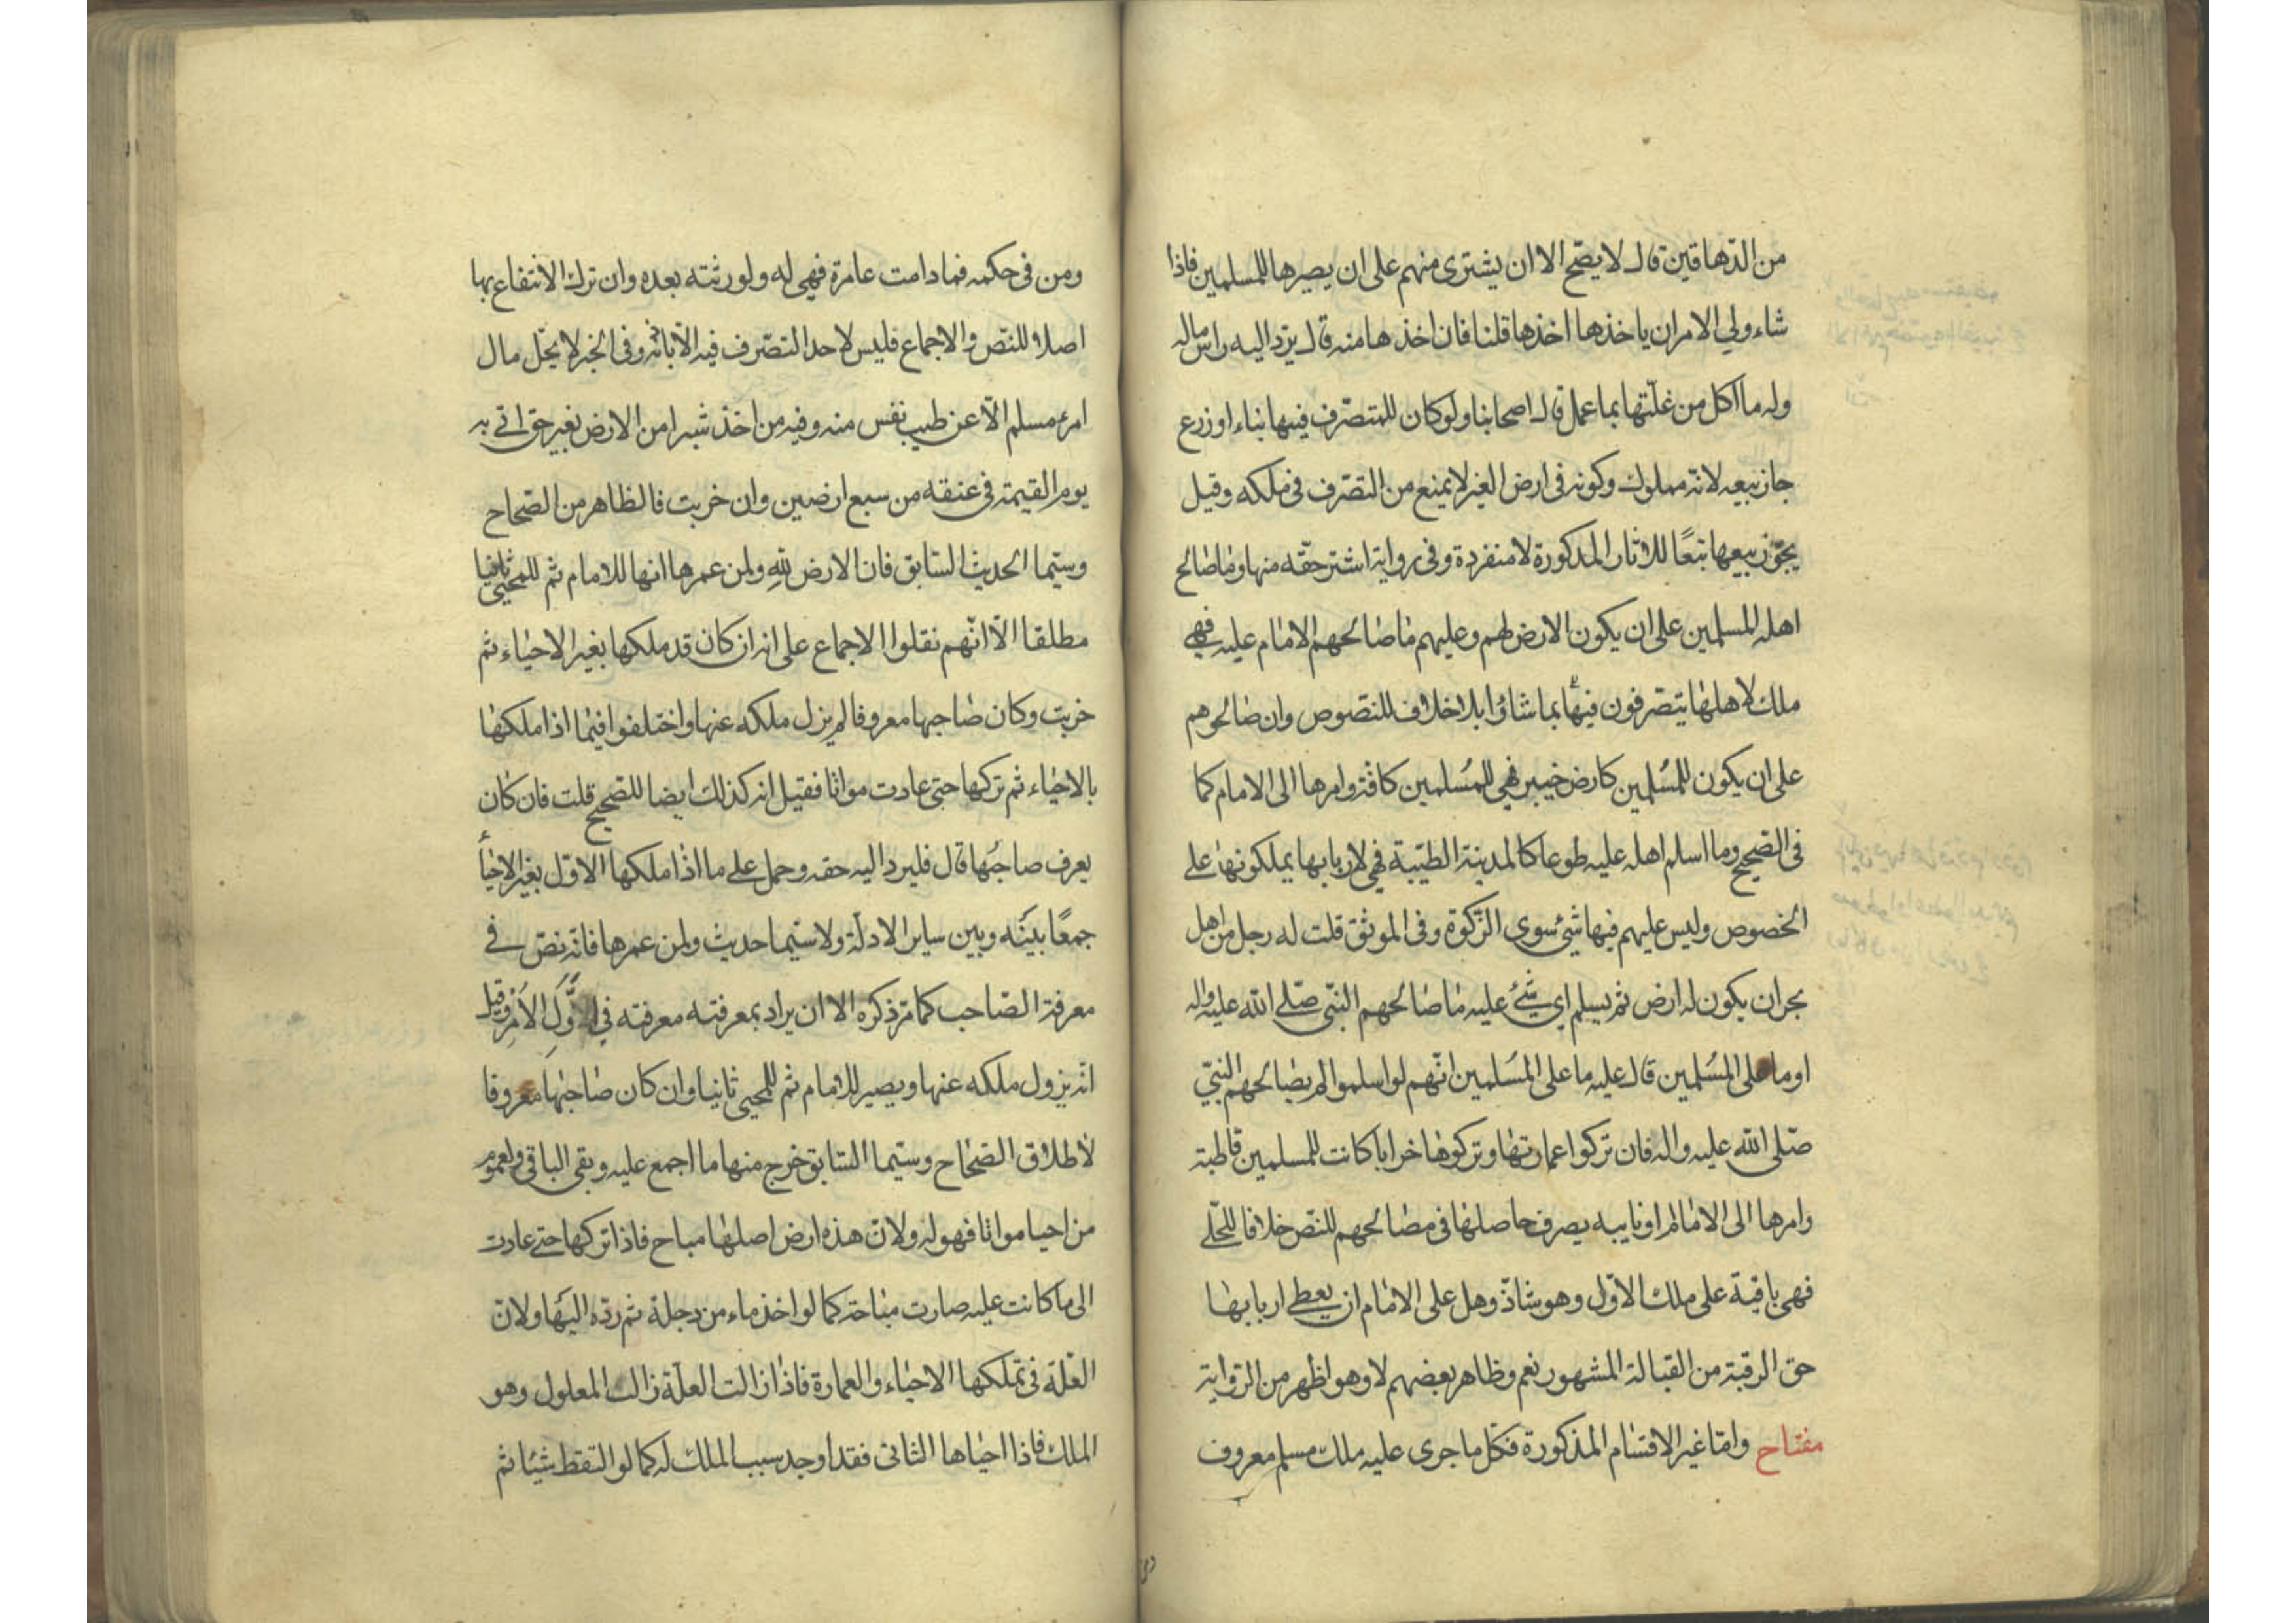 من الدهاقين قال لا يصح الا ان يشترى منهم على ان يصيرها للمسلمين فاذا
شاء ولي الامر ان ياخذها اخذها قلنا فان اخذها منه قال يرد اليه راس ماله
وله ما اكل من غلّتها بما عمل قال اصحابنا ولو كان للمتصرّف فيها بناء او زرع
جاز بيعه لانه مملوك وكونه فى ارض الغير لا يمنع من التصرّف فى ملكه وقيل
يجوز بيعها تبعًا للاثار المذكورة لا منفردة وفى رواية اشتر حقّه منها وما صالح
اهله المسلمين على ان يكون الارض لهم وعليهم ما صالحهم الامام عليه فهي
ملك لاهلها يتصرفون فيها بما شاؤا بلا خلاف للنصوص وان صالحوهم
على ان يكون للمسلمين كارض خيبر فهي للمسلمين كافة وامرها الى الامام كما
فى الصحيح وما اسلم اهله عليه طوعا كالمدينة الطيّبة فهى لاربابها يملكونها على
الخصوص وليس عليهم فيها شئ سوى الزكوة وفى الموثق قلت له رجل من اهل
نجران يكون له ارض ثم يسلم اي شئ عليه ما صالحهم النبّى صلى الله عليه واله
او ما على المسلمين قال عليه ما على المسلمين انّهم لو اسلموا لم يصالحهم النبيّ
صلى الله عليه واله فان تركوا عمارتها وتركوها خرابا كانت للمسلمين قاطبة
وامرها الى الامام او نايبه يصرف حاصلها فى مصالحهم للنص خلافا للحلّي
فهى باقية على ملك الاوّل وهو شاذّ وهل على الامام ان يعطى اربابها
حق الرقبة من القبالة المشهور نعم وظاهر بعضهم لا وهو اظهر من الرواية
مفتاح وامّا غير الاقسام المذكورة فكل ما جرى عليه ملك مسلم معروف
ومن فى حكمه فما دامت عامرة فهي له ولورثته بعده وان ترك الانتفاع بها
اصلا للنص والاجماع فليس لاحد التصرف فيه الّا باذنه وفى الخبر لا يحلّ مال
امرء مسلم الّا عن طيب نفس منه وفيه من اخذ شبرا من الارض بغير حق اتى به
يوم القيمة فى عنقه من سبع ارضين وان خربت فالظاهر من الصّحاح
وسيّما الحديث السّابق فان الارض لله ولمن عمرها انها للامام ثم للمحيى ثانيا
مطلقا الّا انّهم نقلوا الاجماع على انه ان كان قد ملكها بغير الاحياء ثم
خربت وكان صاحبها معروفا لم يزل ملكه عنها واختلفوا فيما اذا ملكها
بالاحياء ثم تركها حتى عادت مواتا فقيل انه كذلك ايضا للصحيح قلت فان كان
يعرف صاحبها قال فليرد اليه حقه وحمل على ما اذا ملكها الاوّل بغير الاحياء
جمعًا بينه وبين ساير الادلّة ولا سيّما حديث ولمن عمرها فانّه نصّ فى
معرفة الصّاحب كما مرّ ذكره الا ان يراد بمعرفته معرفته في اوّل الامر وقيل
انّه يزول ملكه عنها ويصير للامام ثم للمحيى ثانيا وان كان صاحبها معروفا
لاطلاق الصّحاح وسيّما السّابق خرج منها ما اجمع عليه وبقى الباقى ولعموم
من احيا مواتا فهو له ولانّ هذه ارض اصلها مباح فاذا تركها حتى عادت
الى ما كانت عليه صارت مباحة كما لو اخذ ماء من دجلة ثم ردّه اليها ولانّ
العلّة فى تملكها الاحياء والعمارة فاذا زالت العلّة زالت المعلول وهو
الملك فاذا احياها الثانى فقد اوجد سبب الملك له كما لو التقط شيئا ثم